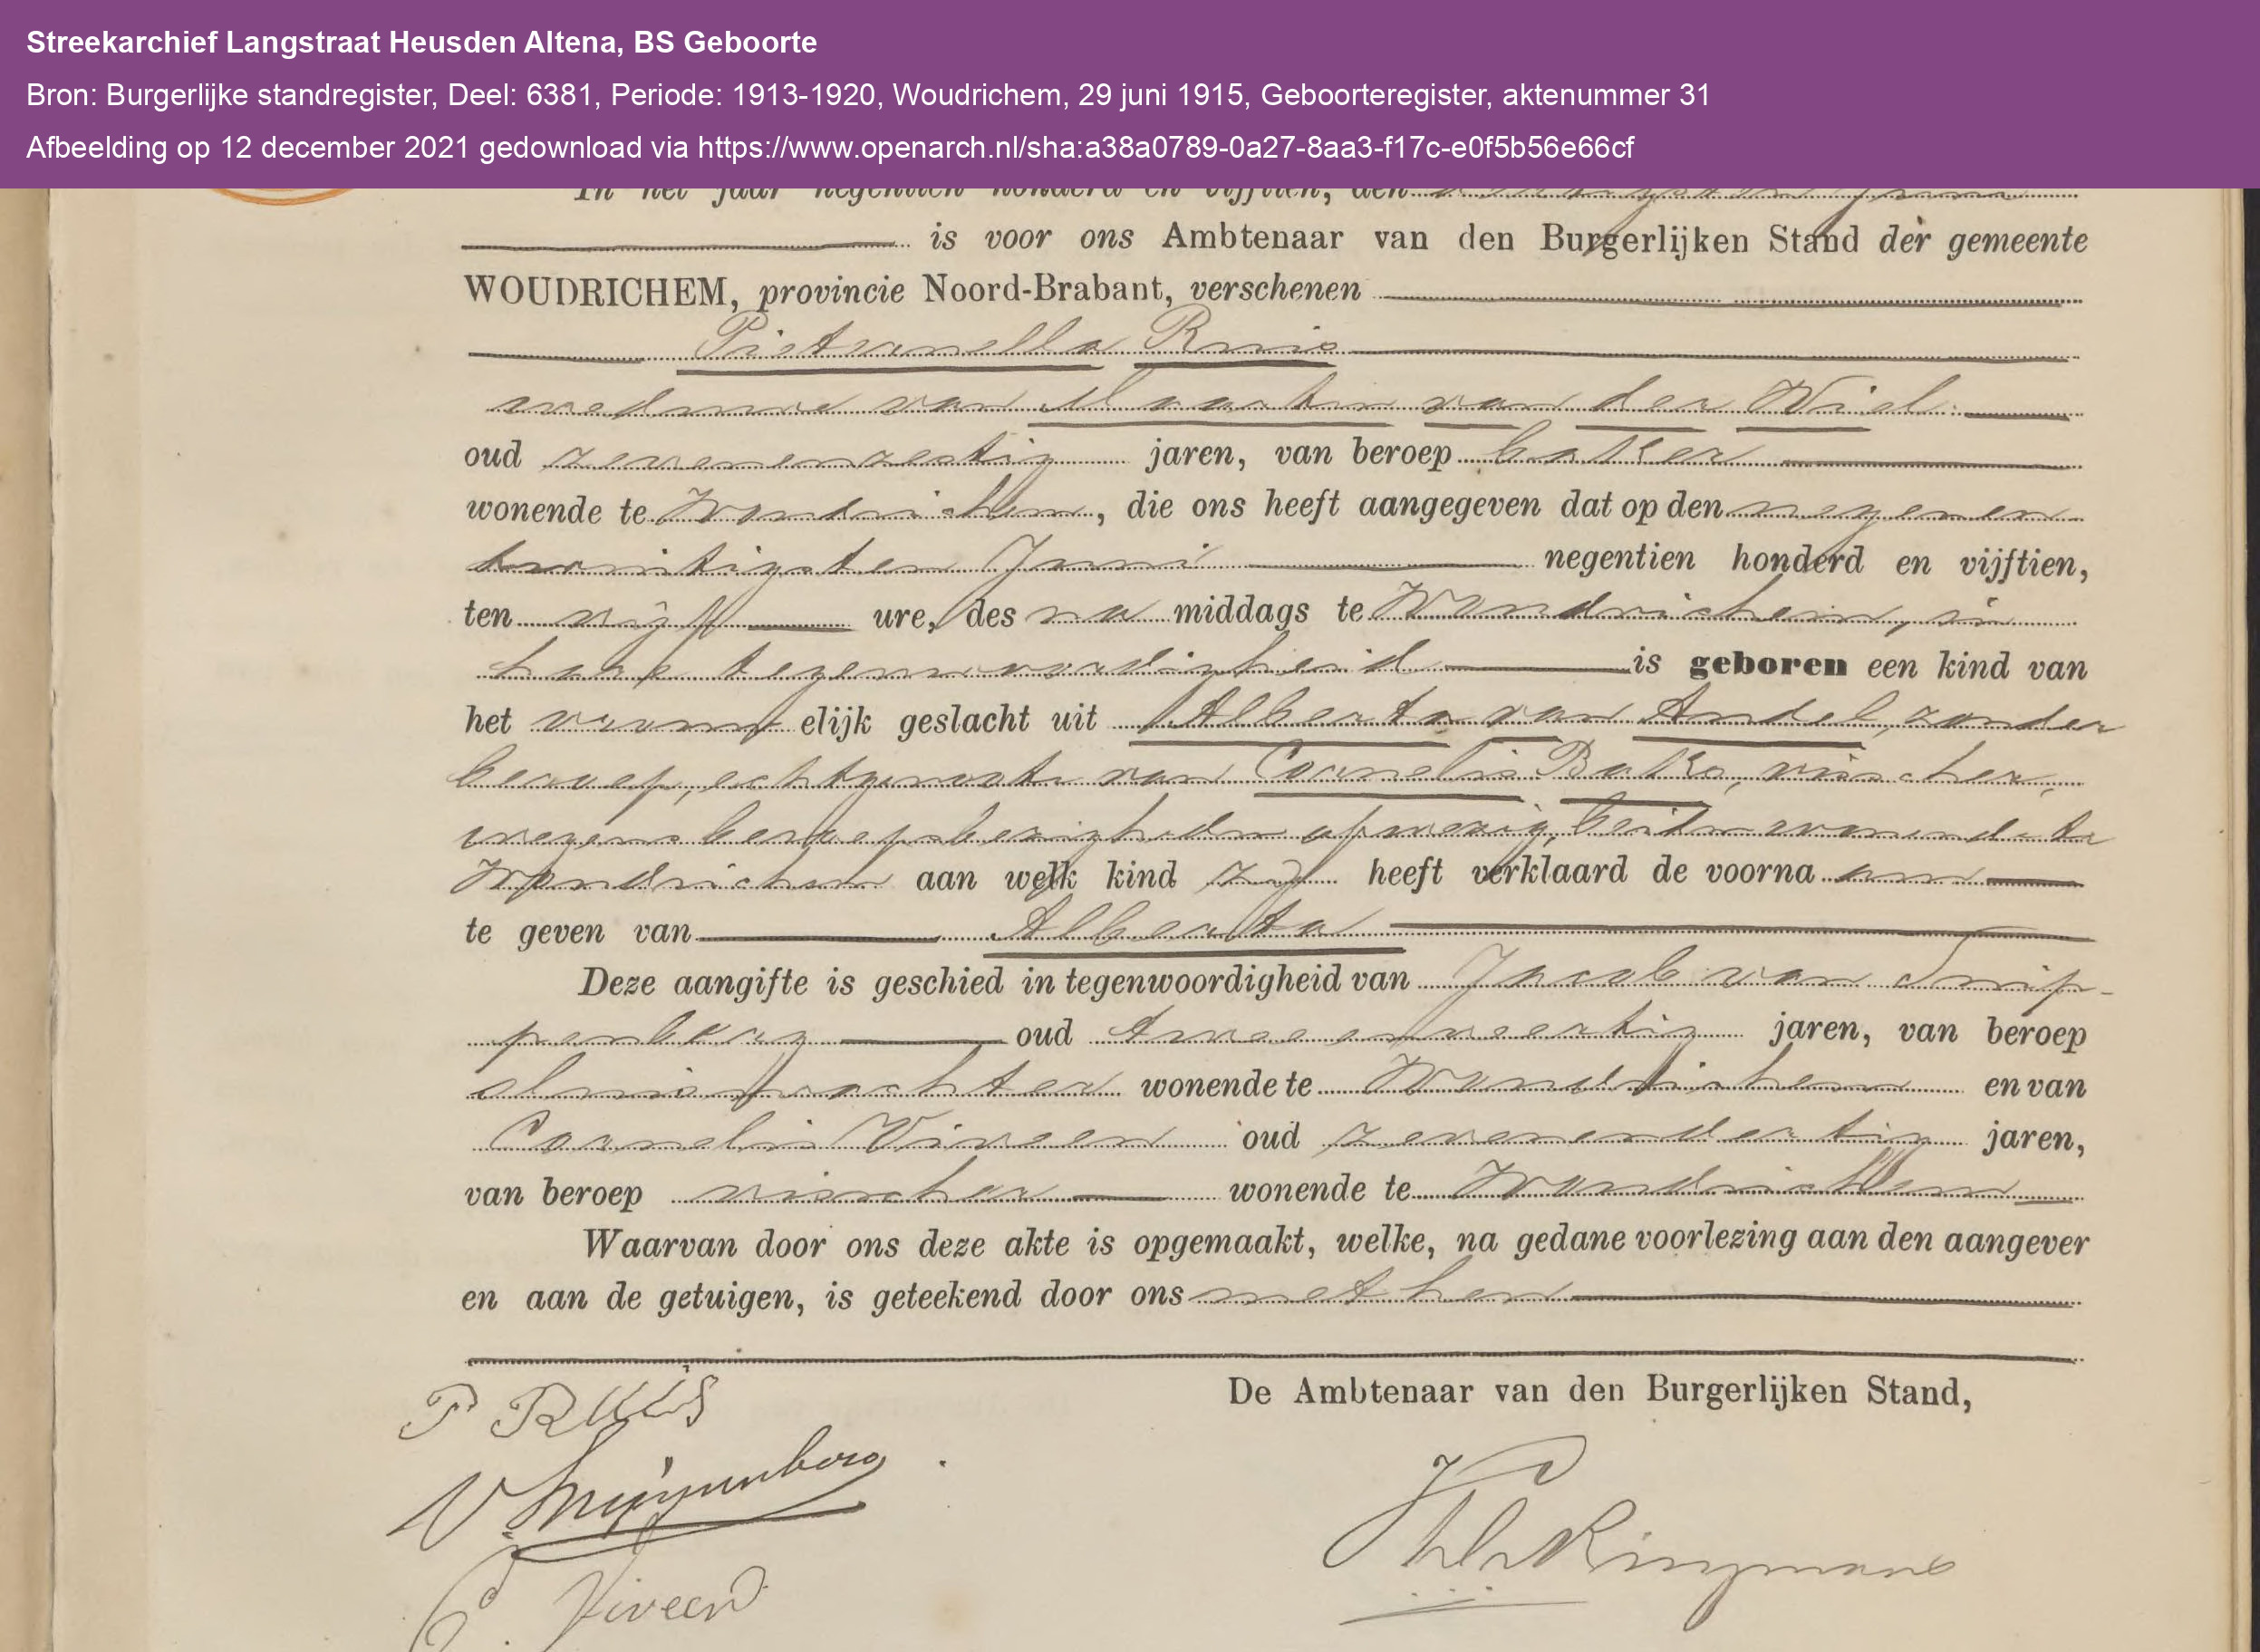 Streekarchief Langstraat Heusden Altena, BS Geboorte
Bron: Burgerlijke standregister, Deel: 6381, Periode: 1913-1920, Woudrichem, 29 juni 1915, Geboorteregister, aktenummer 31
Afbeelding op 12 december 2021 gedownload via https://www.openarch.nl/sha:a38a0789-0a27-8aa3-f17c-e0f5b56e66cf
In het jaar negentien honderd en vijftien, den
is voor ons Ambtenaar van den Burgerlijken Stand der gemeente
WOUDRICHEM, provincie Noord-Brabant, verschenen
Pietronella Ruis
weduwe van Maarten van der Wiel
oud zevenenzestig jaren, van beroep baker
wonende te Woudrichem, die ons heeft aangegeven dat op den negenen
twintigsten Juni negentien honderd en vijftien,
ten vijf ure, des na middags te Woudrichem, in
hare tegenwoordigheid is geboren een kind van
het vrouw elijk geslacht uit Alberta van Andel, zonder
beroep, echtgenoote van Cornelis Bako, visscher,
wegens beroepsbezigheden afwezig, beiden wonende te
Woudrichem aan welk kind zij heeft verklaard de voorna am
te geven van Alberta
Deze aangifte is geschied in tegenwoordigheid van Jacob van Snip-
penberg oud tweeenveertig jaren, van beroep
sluiswachter wonende te Woudrichem en van
Cornelis Viveen oud zevenendertig jaren,
van beroep visscher wonende te Woudrichem
Waarvan door ons deze akte is opgemaakt, welke, na gedane voorlezing aan den aangever
en aan de getuigen, is geteekend door ons met hen
De Ambtenaar van den Burgerlijken Stand,
P Ruis
V Snippenberg
C. Viveen